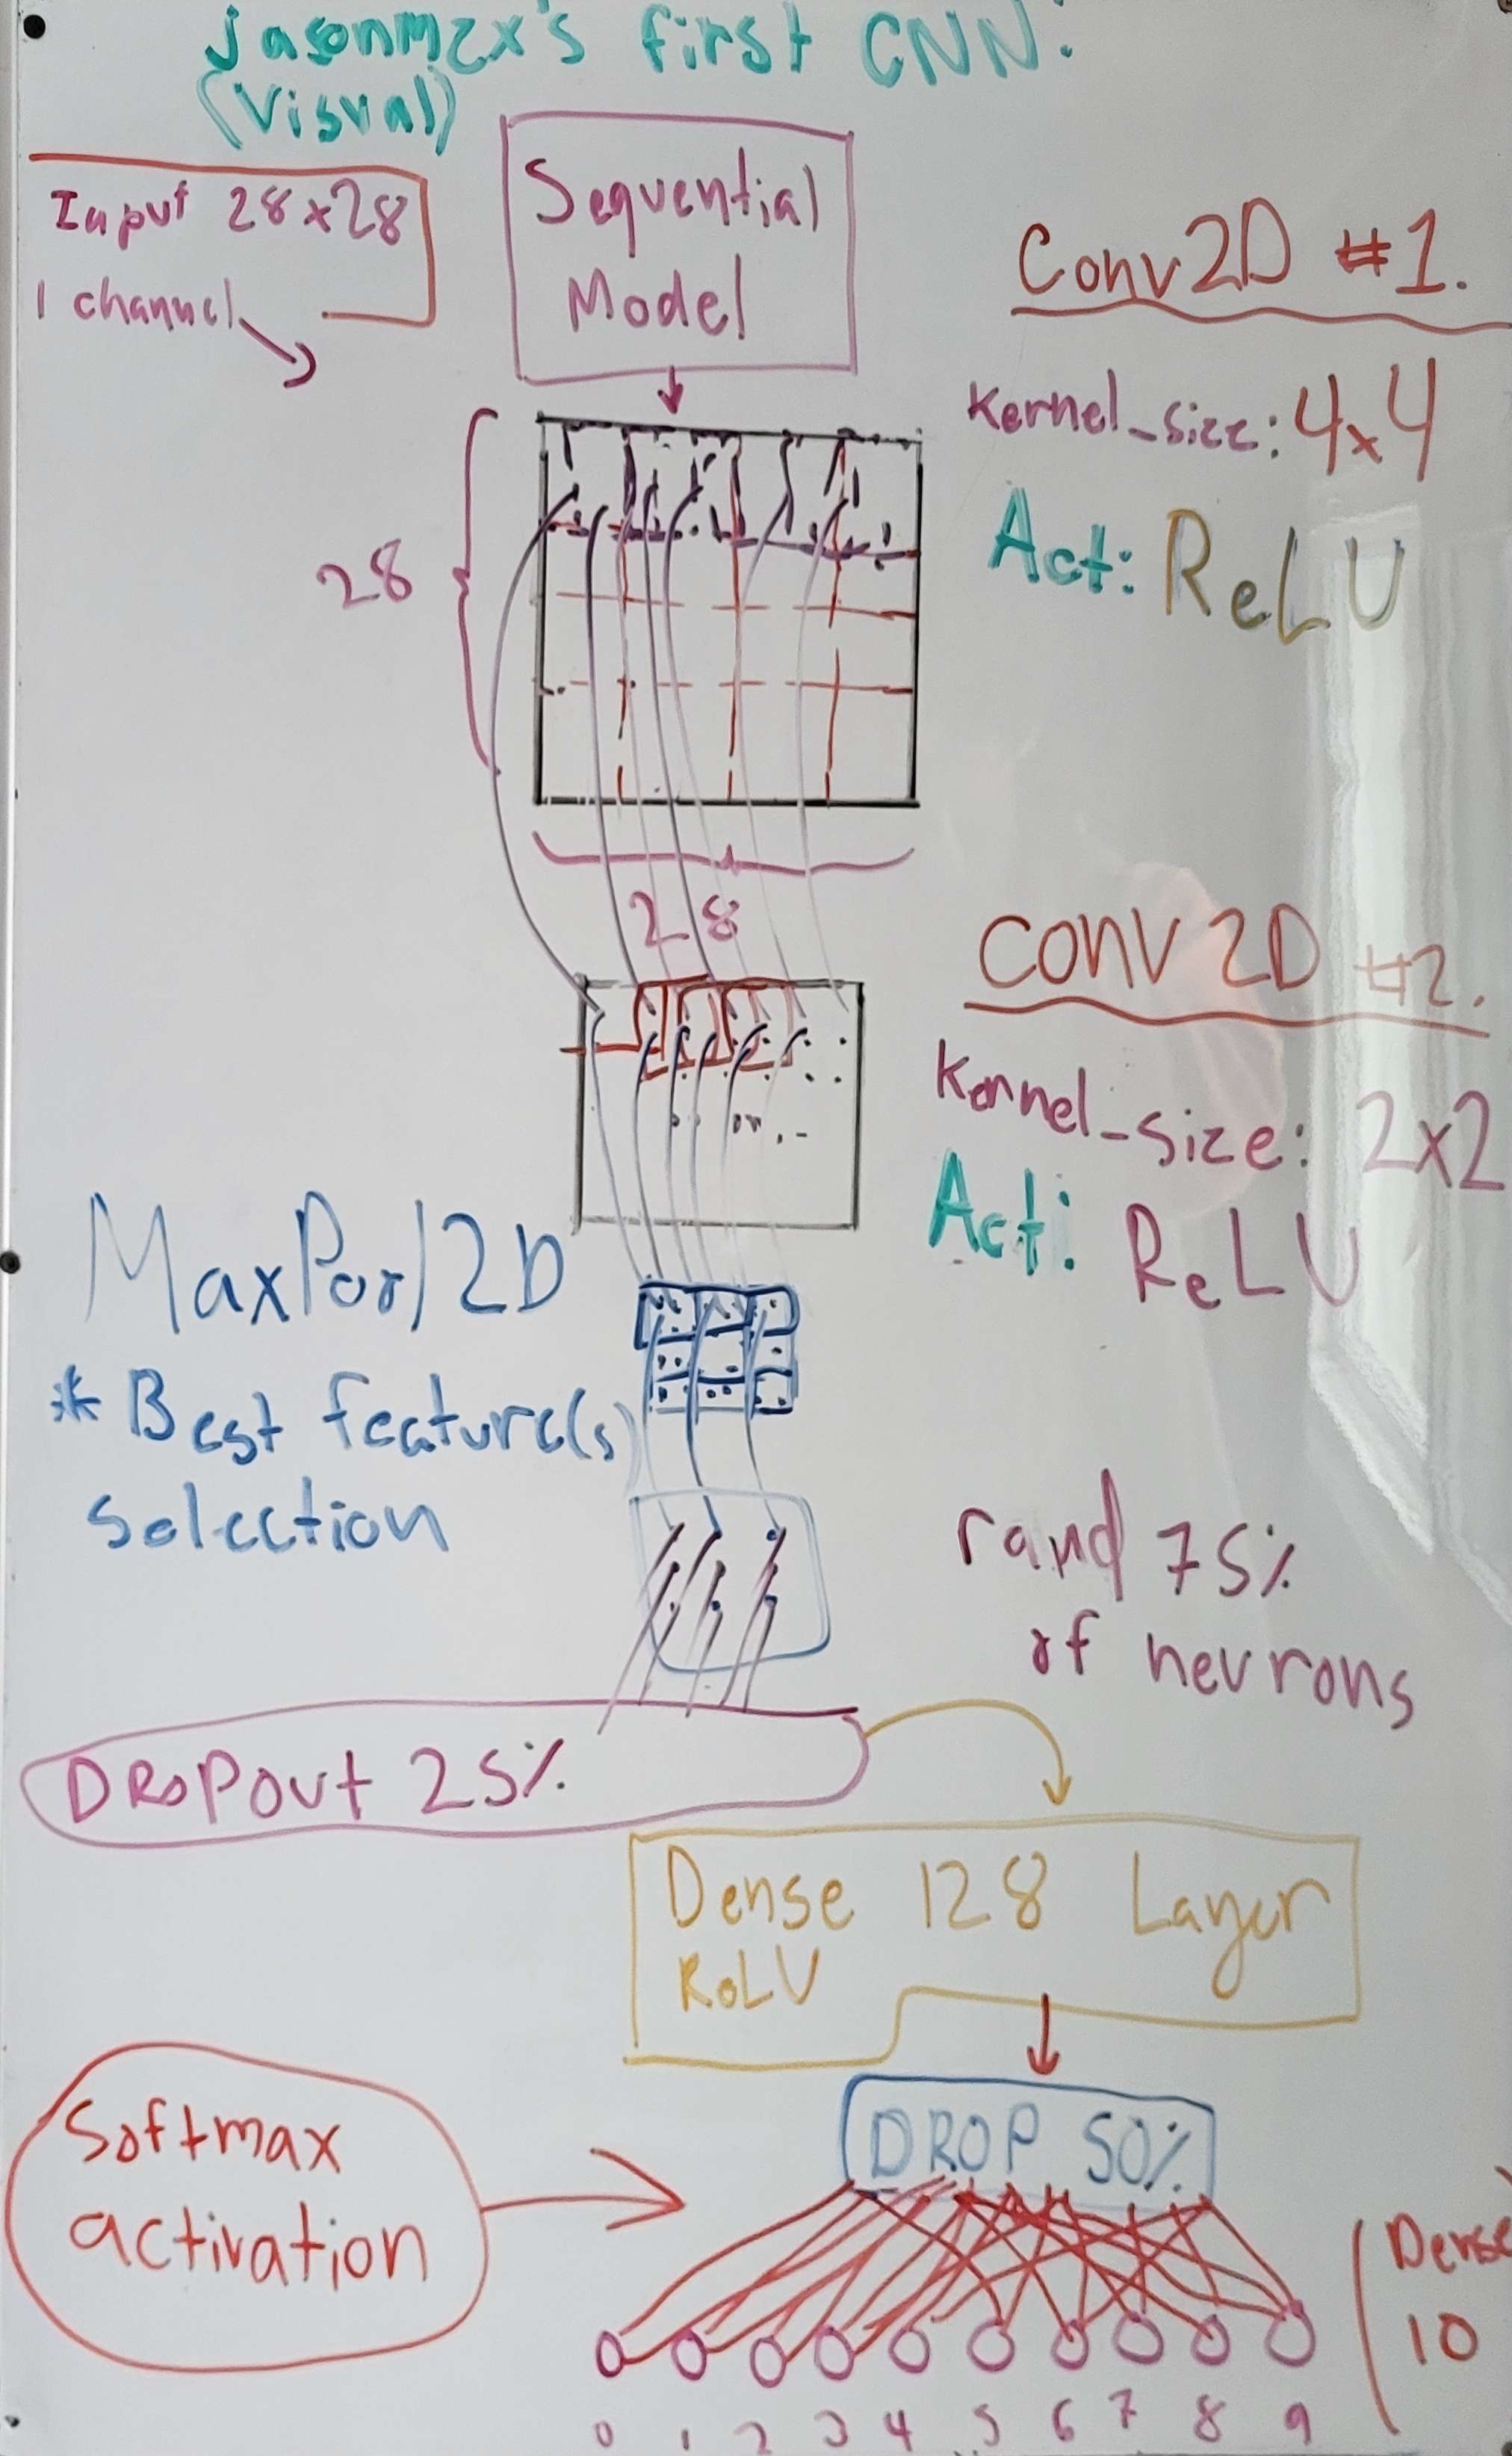 jasonmzx's first CNN:
(Visual)
Input 28x28
1 channel
Sequential
Model
Conv2D #1.
Kernel_size: 4x4
Act: ReLU
28
28
CONV 2D #2.
Kernel_size: 2x2
Act: ReLU
MaxPool2D
* Best feature(s)
selection
rand 75%
of neurons
DROPOut 25%
Dense 128 Layer
ReLU
Softmax
activation
DROP 50%
Dense
10
0 1 2 3 4 5 6 7 8 9